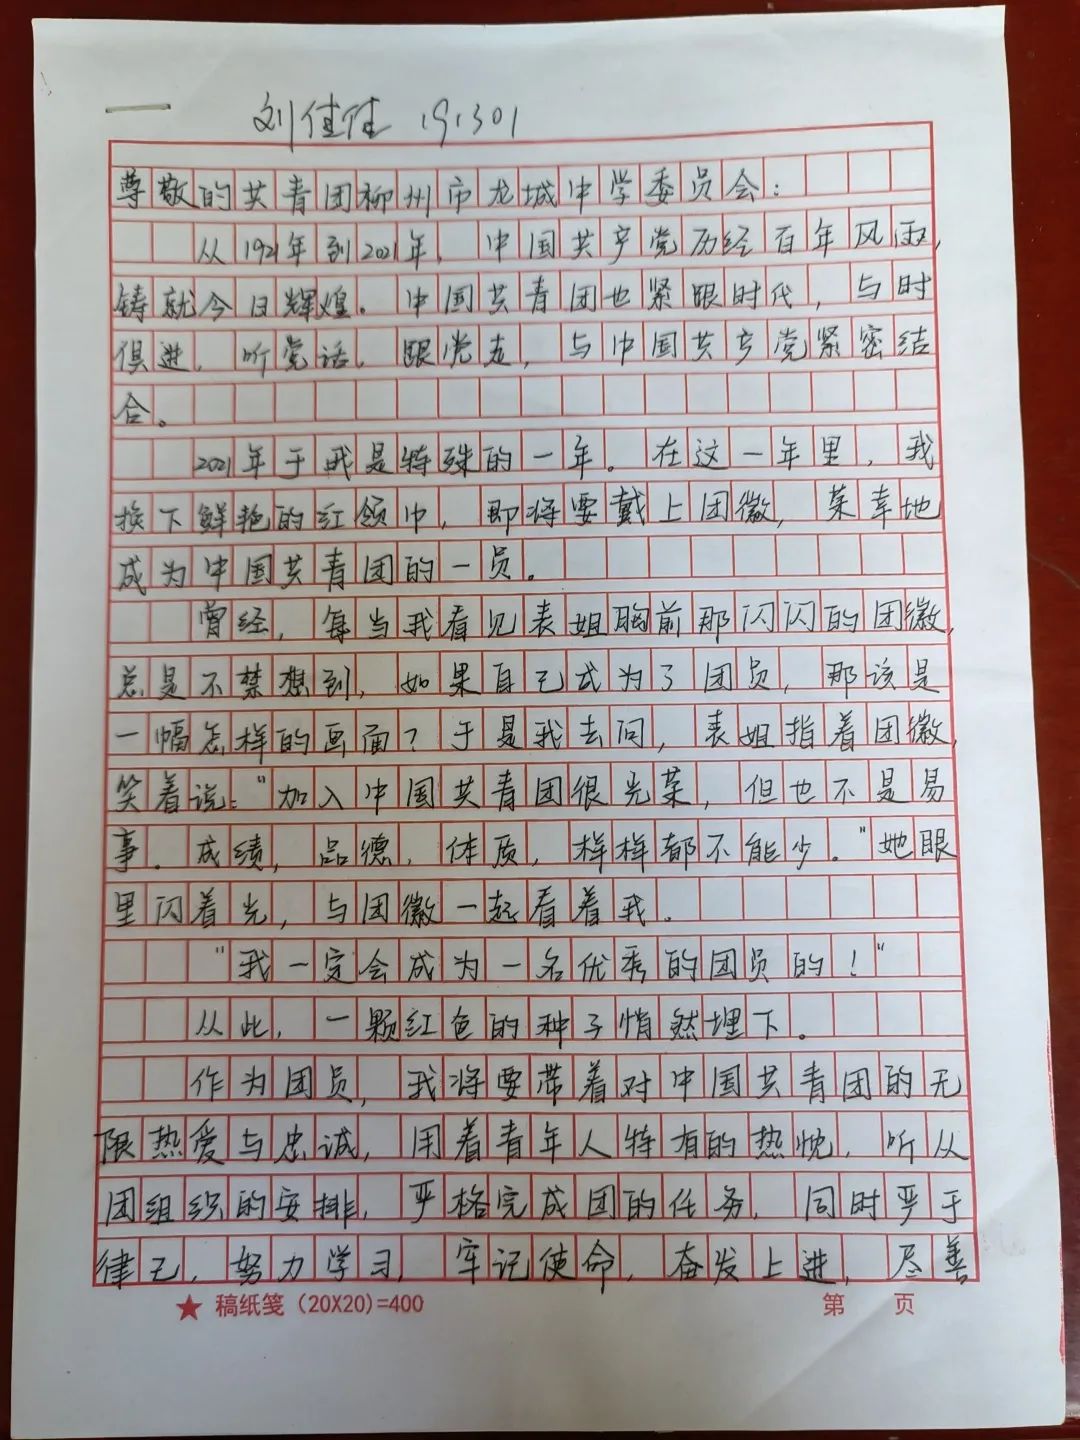 刘佳佳 191301
尊敬的共青团柳州市龙城中学委员会：
从1921年到2021年，中国共产党历经百年风雨，
铸就今日辉煌。中国共青团也紧跟时代，与时
俱进，听党话，跟党走，与中国共产党紧密结
合。
2021年于我是特殊的一年。在这一年里，我
换下鲜艳的红领巾，即将要戴上团徽，荣幸地
成为中国共青团的一员。
曾经，每当我看见表姐胸前那闪闪的团徽，
总是不禁想到，如果自己成为了团员，那该是
一幅怎样的画面？于是我去问，表姐指着团徽，
笑着说："加入中国共青团很光荣，但也不是易
事。成绩，品德，体质，样样都不能少。"她眼
里闪着光，与团徽一起看着我。
"我一定会成为一名优秀的团员的！"
从此，一颗红色的种子悄然埋下。
作为团员，我将要带着对中国共青团的无
限热爱与忠诚，用着青年人特有的热忱，听从
团组织的安排，严格完成团的任务，同时严于
律己，努力学习，牢记使命，奋发上进，尽善
★ 稿纸笺（20X20)=400 第 页